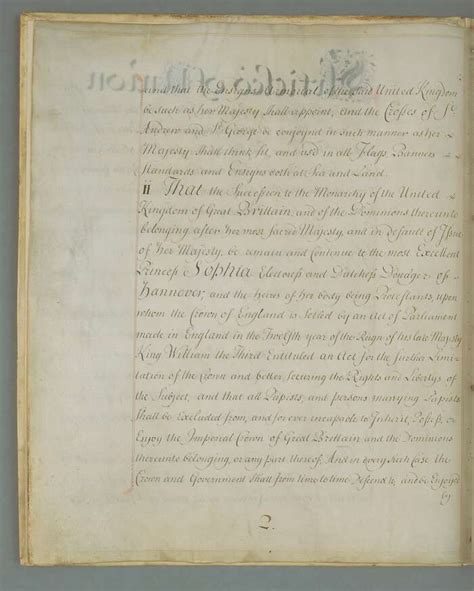 and that the Ensigns Armorial of the said United Kingdom
be such as her Majesty shall appoint, and the Crosses of St
Andrew and St George be conjoynd in such manner as her
Majesty shall think fit, and used in all Flags, Banners
Standards and Ensigns both at Sea and Land.
II That the Succession to the Monarchy of the United
Kingdom of Great Brittain, and of the Dominions thereunto
belonging after her most Sacred Majesty, and in default of Issue
of her Majesty, be remain and continue to the most Excellent
Princess Sophia Electoress and Dutchess Douager of
Hannover, and the heirs of her body being Protestants, upon
whom the Crown of England is Setled by an Act of Parliament
made in England in the Twelfth year of the Reign of his late Majesty
King William the Third Entituled an Act for the further Limi-
tation of the Crown and better Securing the Rights and Libertys of
the Subject, and that all Papists, and persons marrying Papists
shall be Excluded from, and for ever incapable to Inherit, Possess, or
Enjoy the Imperial Crown of Great Brittain and the Dominions
thereunto belonging, or any part thereof. And in every such case the
Crown and Government shall from time to time Descend to, and be Enjoyed
by
2